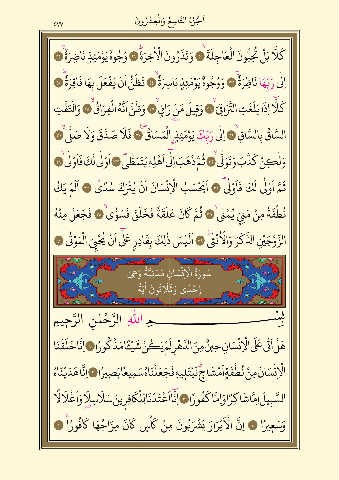 اَلْجُزْءُ التَّاسِعُ وَالْعِشْرُونَ
٥٧٧
كَلَّا بَلْ تُحِبُّونَ الْعَاجِلَةَۙ ۝ وَتَذَرُونَ الْاٰخِرَةَۜ ۝ وُجُوهٌ يَوْمَئِذٍ نَاضِرَةٌۙ ۝
اِلٰى رَبِّهَا نَاظِرَةٌۚ ۝ وَوُجُوهٌ يَوْمَئِذٍ بَاسِرَةٌۙ ۝ تَظُنُّ اَنْ يُفْعَلَ بِهَا فَاقِرَةٌۜ ۝
كَلَّٓا اِذَا بَلَغَتِ التَّرَاقِيَۙ ۝ وَق۪يلَ مَنْ رَاقٍۙ ۝ وَظَنَّ اَنَّهُ الْفِرَاقُۙ ۝ وَالْتَفَّتِ
السَّاقُ بِالسَّاقِۙ ۝ اِلٰى رَبِّكَ يَوْمَئِذٍ الْمَسَاقُۜ ۝ فَلَا صَدَّقَ وَلَا صَلّٰىۙ ۝
وَلٰكِنْ كَذَّبَ وَتَوَلّٰىۙ ۝ ثُمَّ ذَهَبَ اِلٰٓى اَهْلِه۪ يَتَمَطّٰىۜ ۝ اَوْلٰى لَكَ فَاَوْلٰىۙ ۝
ثُمَّ اَوْلٰى لَكَ فَاَوْلٰىۜ ۝ اَيَحْسَبُ الْاِنْسَانُ اَنْ يُتْرَكَ سُدًىۜ ۝ اَلَمْ يَكُ
نُطْفَةً مِنْ مَنِيٍّ يُمْنٰىۙ ۝ ثُمَّ كَانَ عَلَقَةً فَخَلَقَ فَسَوّٰىۙ ۝ فَجَعَلَ مِنْهُ
الزَّوْجَيْنِ الذَّكَرَ وَالْاُنْثٰىۜ ۝ اَلَيْسَ ذٰلِكَ بِقَادِرٍ عَلٰٓى اَنْ يُحْيِيَ الْمَوْتٰى ۝
سُورَةُ الْاِنْسَانِ مَدَنِيَّةٌ وَهِيَ
اِحْدٰى وَثَلَاثُونَ اٰيَةً
بِسْمِ اللّٰهِ الرَّحْمٰنِ الرَّح۪يمِ
هَلْ اَتٰى عَلَى الْاِنْسَانِ ح۪ينٌ مِنَ الدَّهْرِ لَمْ يَكُنْ شَيْـًٔا مَذْكُورًا ۝ اِنَّا خَلَقْنَا
الْاِنْسَانَ مِنْ نُطْفَةٍ اَمْشَاجٍۗ نَبْتَل۪يهِ فَجَعَلْنَاهُ سَم۪يعًا بَص۪يرًا ۝ اِنَّا هَدَيْنَاهُ
السَّب۪يلَ اِمَّا شَاكِرًا وَاِمَّا كَفُورًا ۝ اِنَّٓا اَعْتَدْنَا لِلْكَافِر۪ينَ سَلَاسِلَا وَاَغْلَالًا
وَسَع۪يرًا ۝ اِنَّ الْاَبْرَارَ يَشْرَبُونَ مِنْ كَأْسٍ كَانَ مِزَاجُهَا كَافُورًاۚ ۝